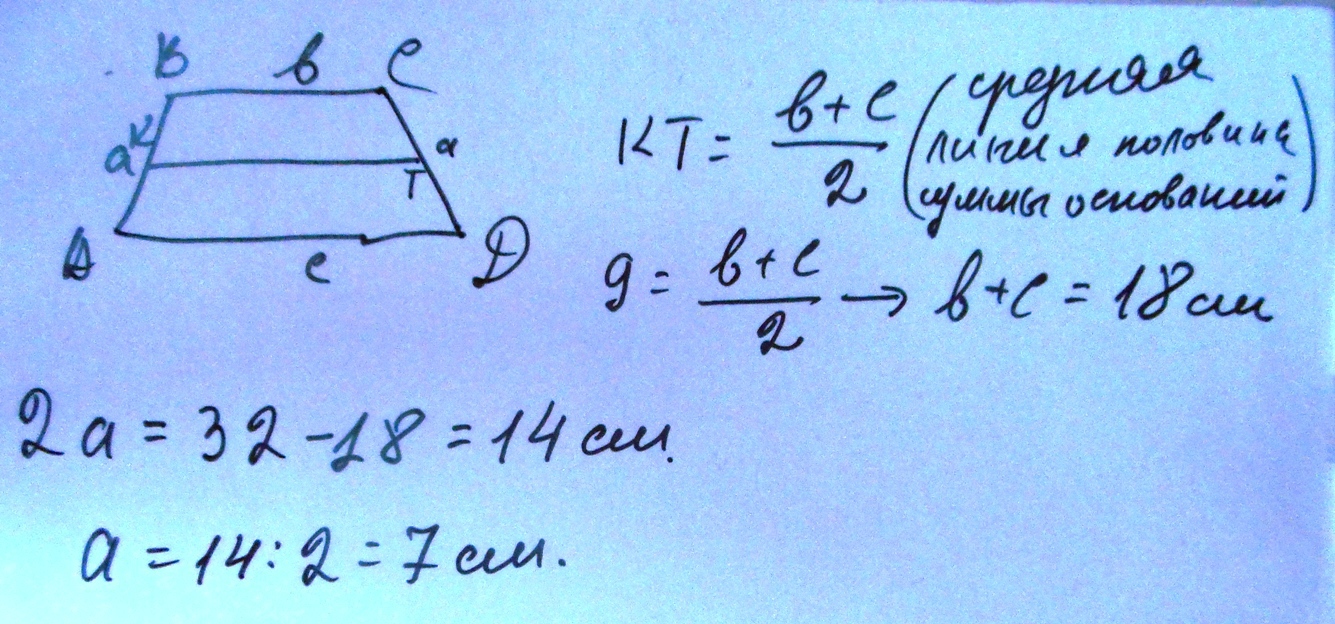 B в C
K
a a
T
A c D
KT = в+c/2 (средняя
линия половина
суммы оснований)
9 = в+c/2 → в+c = 18 см
2a = 32 - 18 = 14 см.
a = 14 : 2 = 7 см.